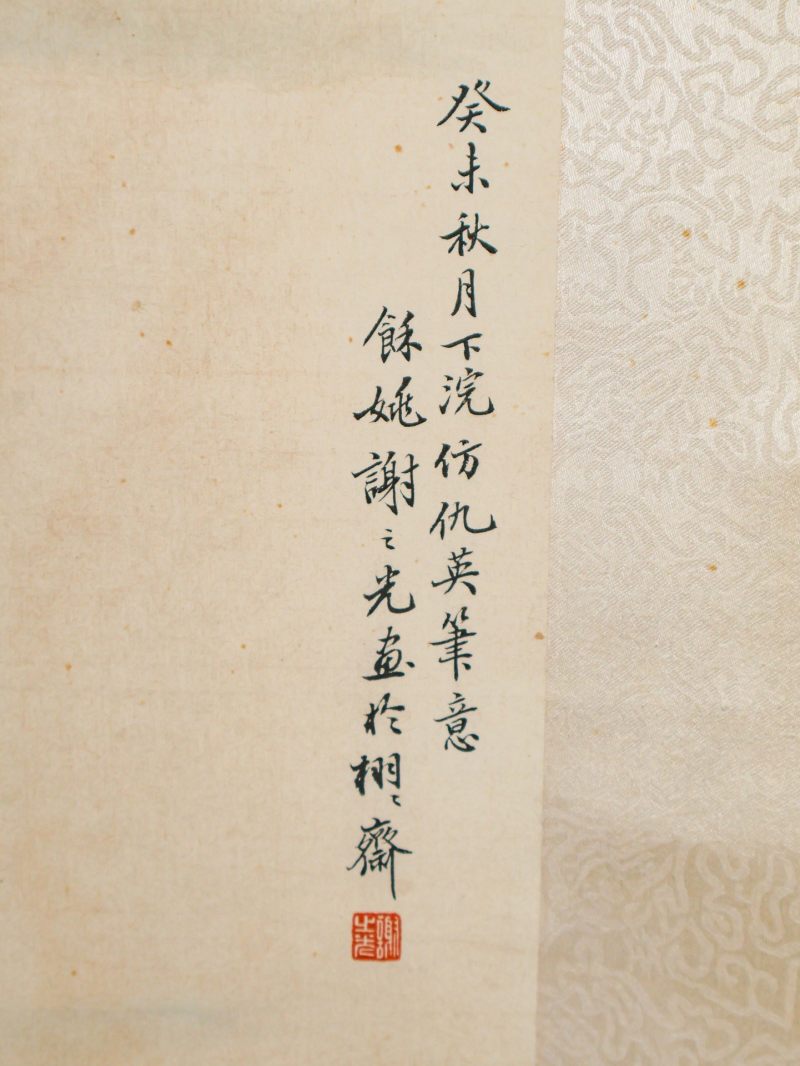 癸未秋月下浣仿仇英筆意
餘姚謝之光畫於栩〻齋
謝之光